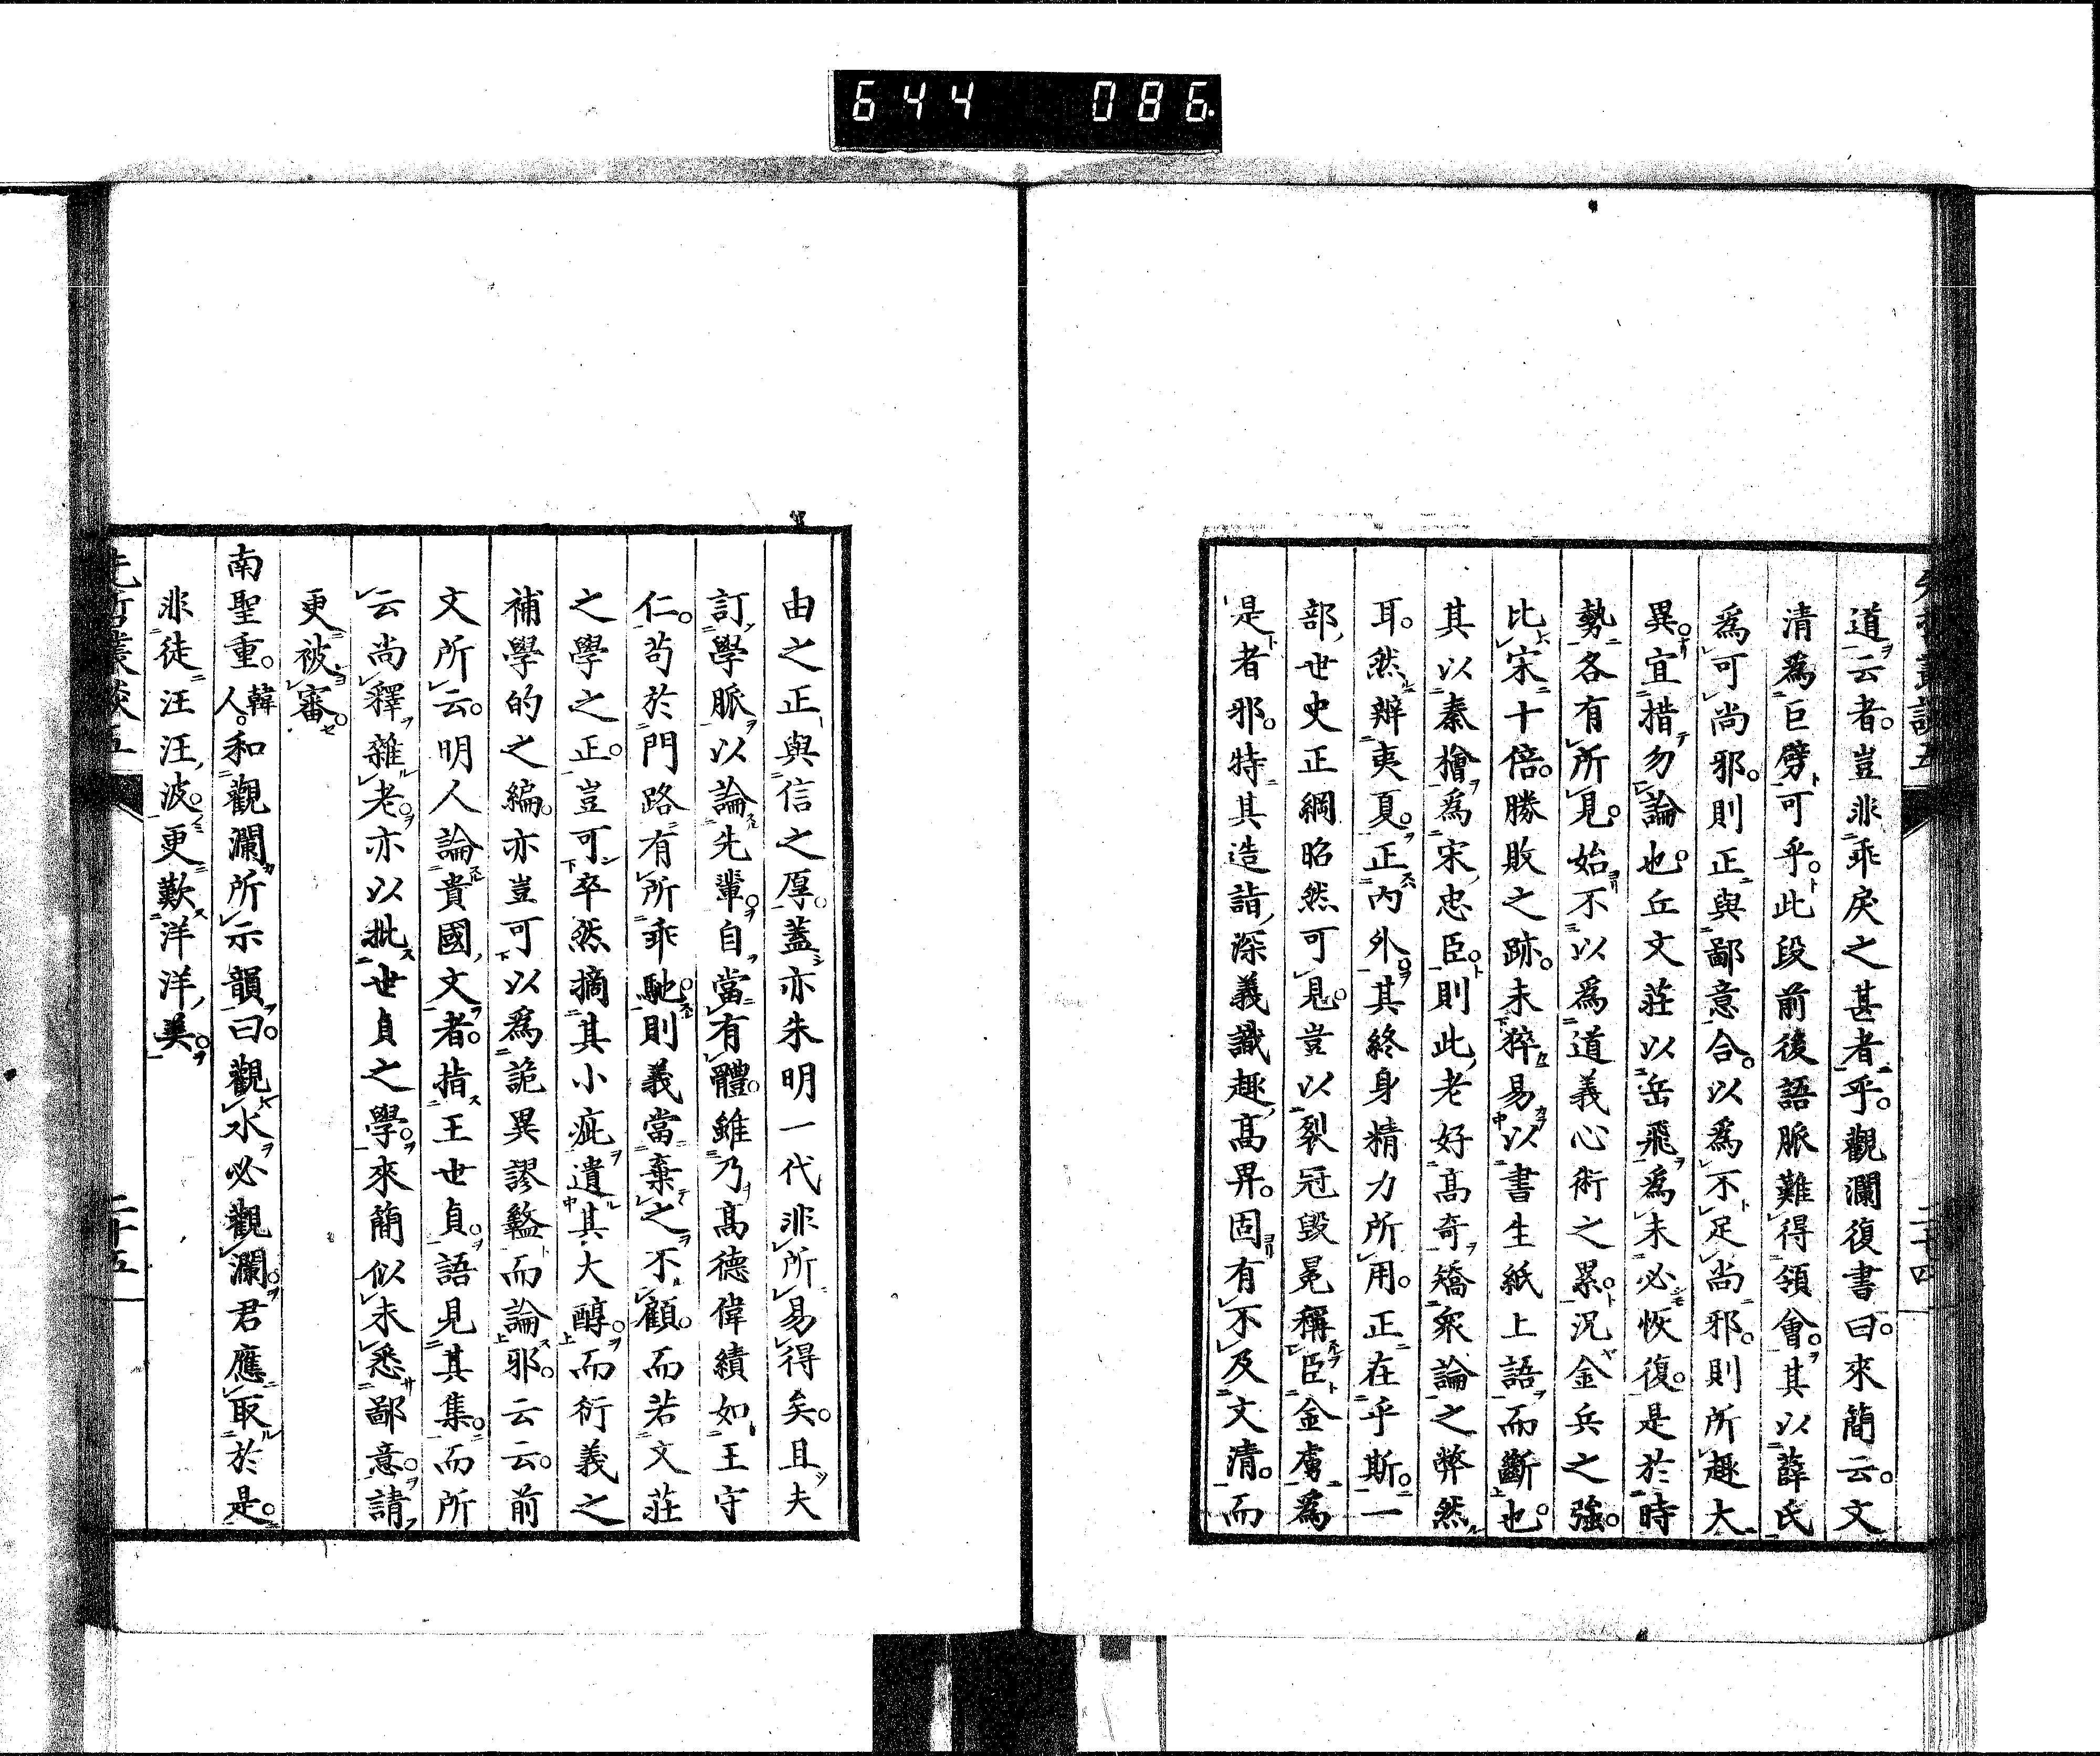 644 086
道云者。豈非乖戾之甚者乎。觀瀾復書曰。來簡云。文
清爲巨劈可乎。此段前後語脈難得領會。其以薛氏
爲可尚邪。則正與鄙意合。以爲不足尚邪。則所趣大
異。宜措勿論也。丘文莊以岳飛爲未必恢復。是於時
勢各有所見。始不以爲道義心術之累。況金兵之強。
比宋十倍。勝敗之跡。未猝易以書生紙上語而斷也。
其以秦檜爲宋忠臣。則此老好高奇矯衆論之弊然
耳。然辨夷夏。正內外。其終身精力所用。正在乎斯。一
部世史正綱昭然可見。豈以裂冠毀冕稱臣金虜爲
是者邪。特其造詣深義識趣高畀。固有不及文清。而
由之正與信之厚。蓋亦朱明一代非所易得矣。且夫
訂學脈以論先輩。自當有體。雖乃高德偉績如王守
仁。苟於門路有所乖馳。則義當棄之不顧。而若文莊
之學之正。豈可卒然摘其小疵遺其大醇。而衍義之
補學的之編。亦豈可以爲詭異謬盭而論邪。云云。前
文所云。明人論貴國文者。指王世貞。語見其集。而所
云尚釋雜老。亦以批世貞之學。來簡似未悉鄙意。請
更被審。
南聖重。韓人。和觀瀾所示韻曰。觀水必觀瀾。君應取於是。
非徒汪汪波。更歎洋洋美。
先哲叢談五
二十四
二十五